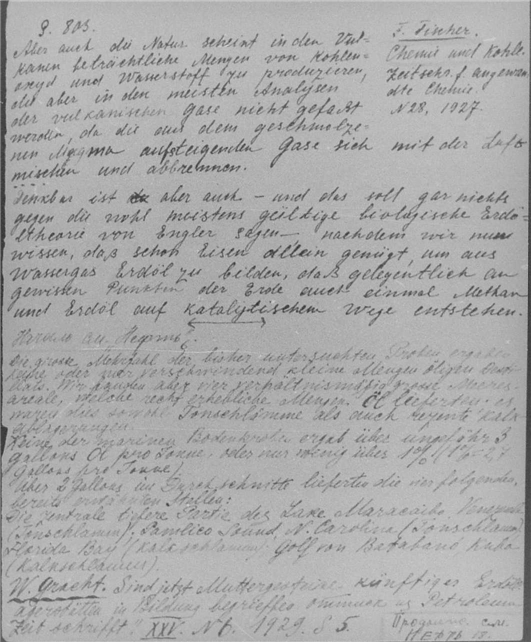 S. 803.
F. Fischer.
Chemie und Kohle.
Zeitschr. f. angewan
dte Chemie.
N 28, 1927.
Aber auch die Natur scheint in den Vul-
kanen beträchtliche Mengen von Kohlen-
oxyd und Wasserstoff zu produzieren,
die aber in den meisten Analysen
der vulkanischen Gase nicht gefaßt
werden, da die aus dem geschmolze-
nen Magma aufsteigenden Gase sich mit der Luft
mischen und abbrennen.
Denkbar ist aber auch – und das soll gar nichts
gegen die wohl meistens gültige biologische Erdö-
ltheorie von Engler sagen – nachdem wir nun
wissen, daß schon Eisen allein genügt, um aus
Wassergas Erdöl zu bilden, daß gelegentlich an
gewissen Punkten der Erde auch einmal Methan
und Erdöl auf katalytischem Wege entstehen.
Начало см. Нефть
Die große Mehrzahl der bisher untersuchten Proben ergaben
keine oder nur verschwindend kleine Mengen öligen
Wir fanden aber verhältnismäßig große Meeres-
areale, welche recht erhebliche Mengen Öl lieferten. es
waren dies sowohl Tonschlämme als auch rezente Kalk
ablagerungen.
Keine der marinen Bodenproben ergab über ungefähr 3
gallons Öl pro Tonne, oder nur wenig über 1%
gallons pro Tonne).
Über 2 Gallons im Durchschnitt lieferten die vier folgenden,
bereits erwähnten Stellen:
Die zentrale tiefere Partie des Lake Maracaibo, Venezuela
(Tonschlamm), Pamlico Sound, N. Carolina (Tonschlamm),
Florida Bay (Kalkschlamm), Golf von Batabano, Kuba
(Kalkschlamm).
W. Gracht. Sind jetzt Muttergesteine künftiger Erdöl
in Bildung begriffen оттиск из Petroleum
Zeitschrift XXV. N 6. 1929. S 5.
Продолж. см.
Нефть II.